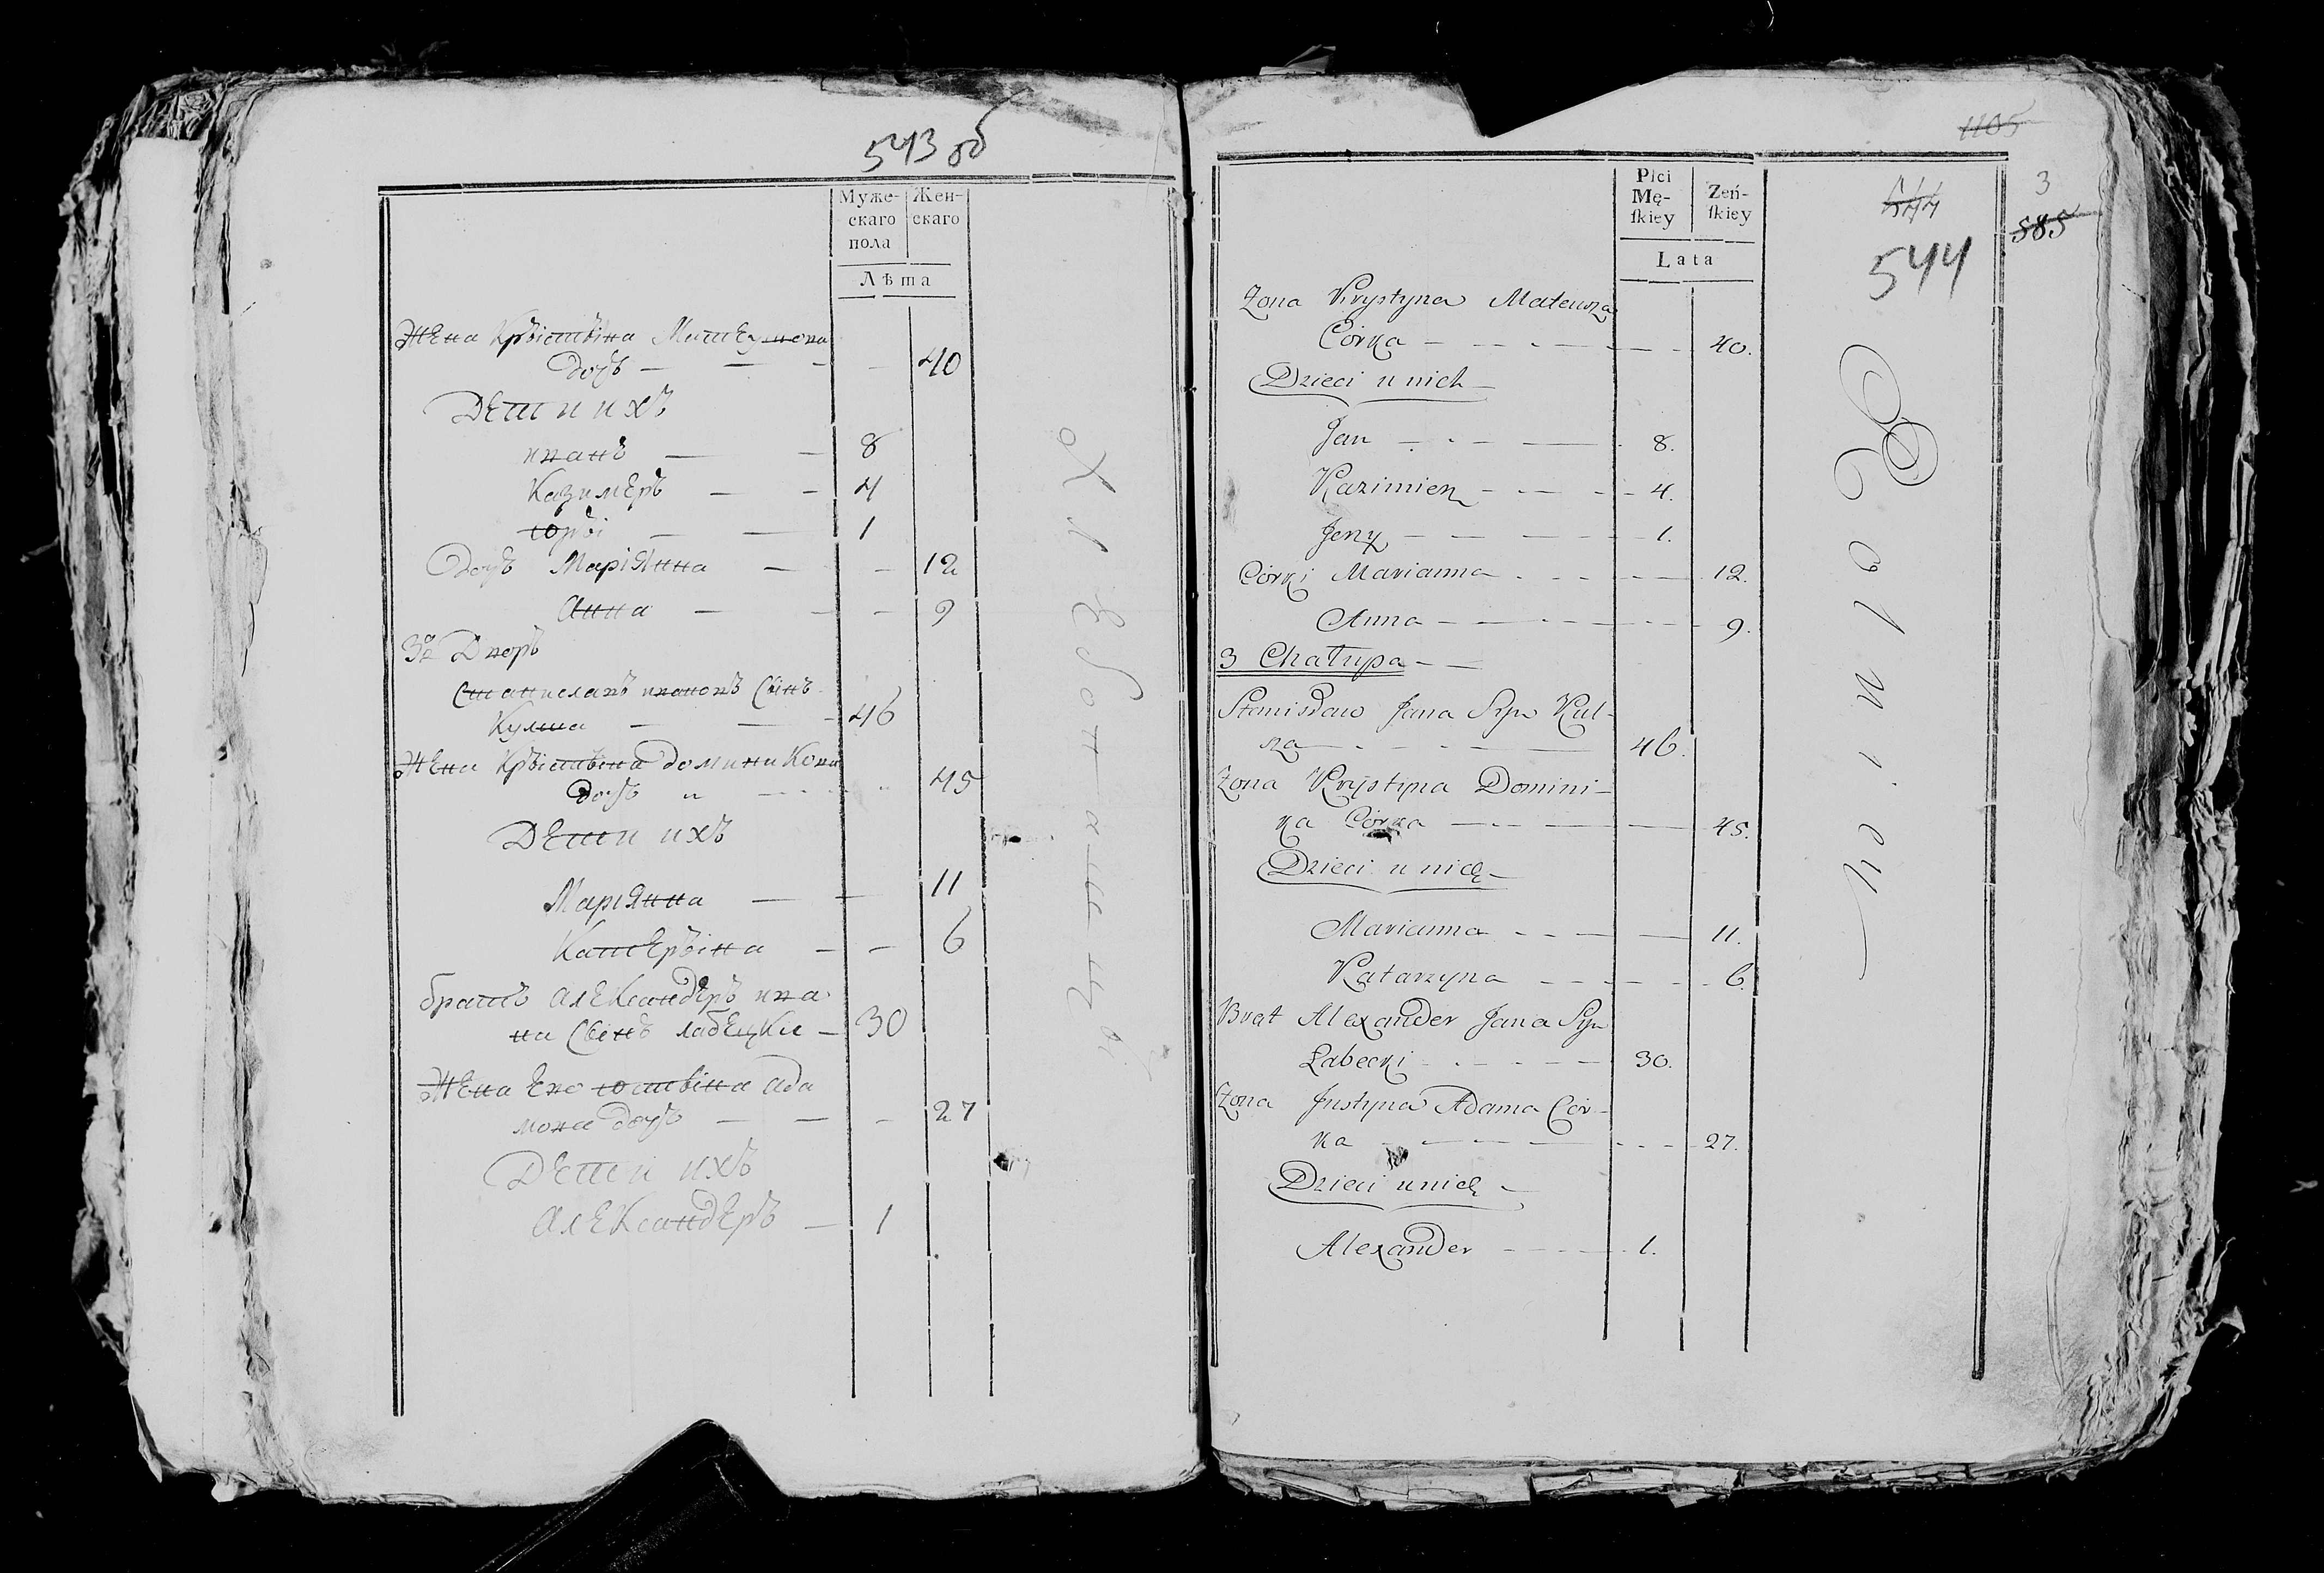 543 об
Муже-
скаго
пола
Жен-
скаго
Лѣта
Жена Крыстына Матеушова
доч — 40
Дети ихъ
иванъ — 8
Казимеръ — 4
юрьі — 1
Дочъ Маріянна — 12
Анна — 9
3й Дворъ
Станиславъ ивановъ Сынъ
Кулша — 46
Жена Крыстына доминикова
дочъ — 45
Дети ихъ
Маріянна — 11
Катерына — 6
братъ Александеръ ива
на Сынъ лабецки — 30
Жена Его юстына ада
мова дочъ — 27
Дети ихъ
Александеръ — 1
1105
Plci
Mę-
ſkiey
Zeń-
ſkiey
Lata
544
544
3
585
Żona Krystyna Mateusza
Córka — 40.
Dzieci u nich
Jan — 8.
Kazimierz — 4.
Jerzy — 1.
Córki Marianna — 12.
Anna — 9.
3 Chałupa
Stanisław Jana Syn Kul-
sza — 46.
Żona Krystyna Domini-
ka Córka — 45.
Dzieci u nich
Marianna — 11.
Katarzyna — 6.
Brat Alexander Jana Syn
Łabecki — 30.
Żona Justyna Adama Cór-
ka — 27.
Dzieci u nich
Alexander — 1.